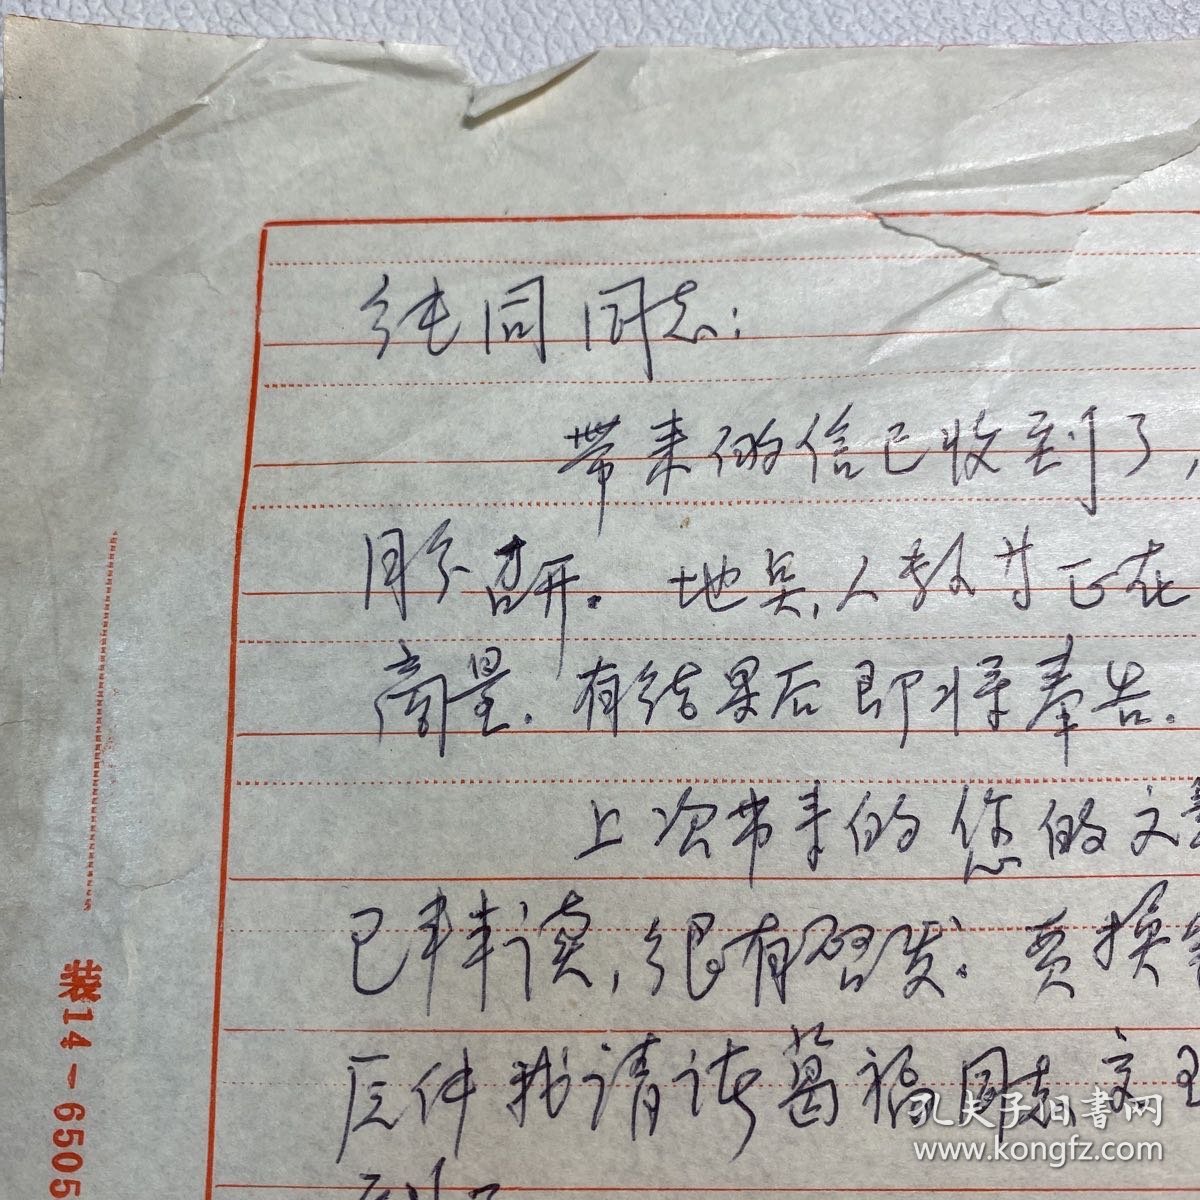 纯同同志：
带来的信已收到了，
月份召开。地点、人数等正在
商量。有结果后即将奉告。
上次带来的您的文
已拜读，很有启发。贾换
原件我请许葛福同志交
装14-6505
孔夫子旧書网
www.kongfz.com